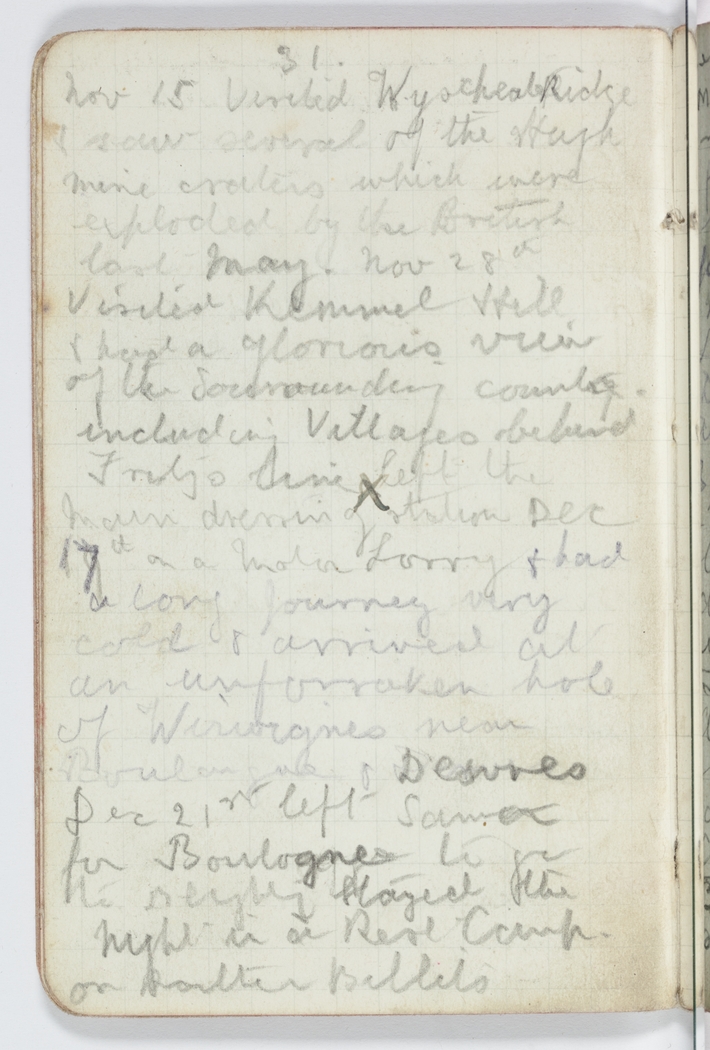 31.
Nov 15 Visited Wyscheate Ridge
& saw several of the Hugh
mine craters which were
exploded by the British
last May. Nov 28th
Visited Kemmel Hill
& had a glorious view
of the Sourrounding country.
including Villages behind
Fritz's line X Left the
Main dressing station Dec
17th on a Motor Lorry & had
a long Journey very
cold & arrived at
an unforsaken hole
of Wirwignes near
Boulogne & Desvres
Dec 21st left Same
for Boulogne to go
to stayed the
Night in a Rest Camp.
or Billets